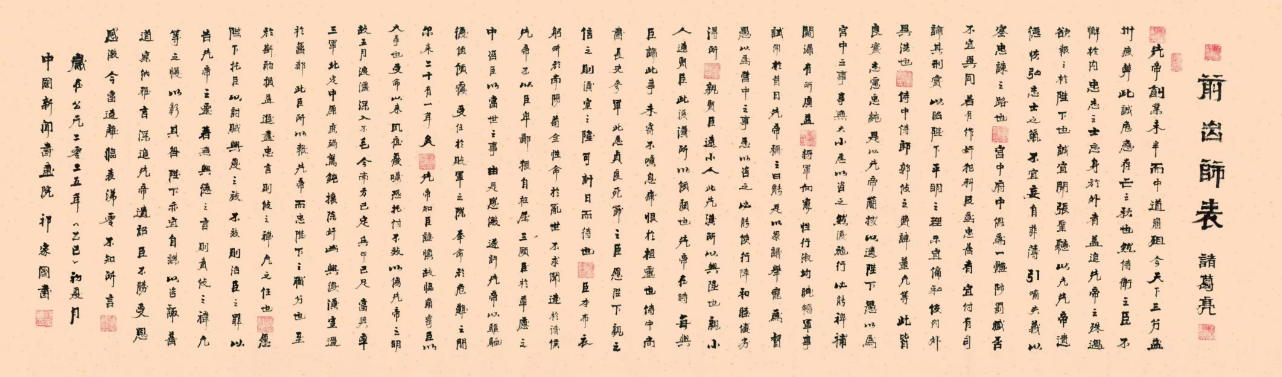 前出師表
諸葛亮
先帝創業未半而中道崩殂今天下三分益
州疲弊此誠危急存亡之秋也然侍衛之臣不
懈於内忠志之士忘身於外者蓋追先帝之殊遇
欲報之於陛下也誠宜開張聖聽以光先帝遺
德恢弘志士之氣不宜妄自菲薄引喻失義以
塞忠諫之路也宮中府中俱為一體陟罰臧否
不宜異同若有作奸犯科及為忠善者宜付有司
論其刑賞以昭陛下平明之理不宜偏私使内外
異法也侍中侍郎郭攸之費禕董允等此皆
良實志慮忠純是以先帝簡拔以遺陛下愚以為
宮中之事事無大小悉以咨之然後施行必能裨補
闕漏有所廣益將軍向寵性行淑均曉暢軍事
試用於昔日先帝稱之曰能是以衆議舉寵為督
愚以為營中之事悉以咨之必能使行陣和睦優劣
得所親賢臣遠小人此先漢所以興隆也親小
人遠賢臣此後漢所以傾頹也先帝在時每與
臣論此事未嘗不嘆息痛恨於桓靈也侍中尚
書長史參軍此悉貞良死節之臣願陛下親之
信之則漢室之隆可計日而待也臣本布衣
躬耕於南陽苟全性命於亂世不求聞達於諸侯
先帝不以臣卑鄙猥自枉屈三顧臣於草廬之
中咨臣以當世之事由是感激遂許先帝以驅馳
後值傾覆受任於敗軍之際奉命於危難之間
爾來二十有一年矣先帝知臣謹慎故臨崩寄臣以
大事也受命以來夙夜憂嘆恐托付不效以傷先帝之明
故五月渡瀘深入不毛今南方已定兵甲已足當獎率
三軍北定中原庶竭駑鈍攘除奸凶興復漢室還
於舊都此臣所以報先帝而忠陛下之職分也至
於斟酌損益進盡忠言則攸之禕允之任也願
陛下托臣以討賊興復之效不效則治臣之罪以
告先帝之靈若無興德之言則責攸之禕允
等之慢以彰其咎陛下亦宜自謀以咨諏善
道察納雅言深追先帝遺詔臣不勝受恩
感激今當遠離臨表涕零不知所言
歲在公元二零二五年（乙巳）初夏月
中國新聞書畫院 祁家國書